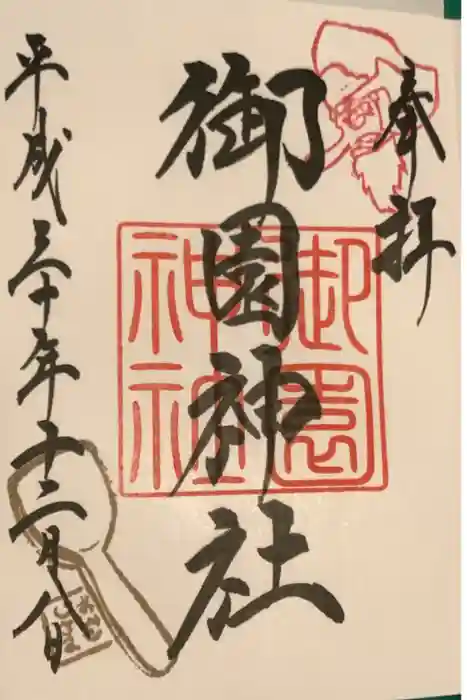 奉拝
御園神社
御園神社
平成三十年十二月八日